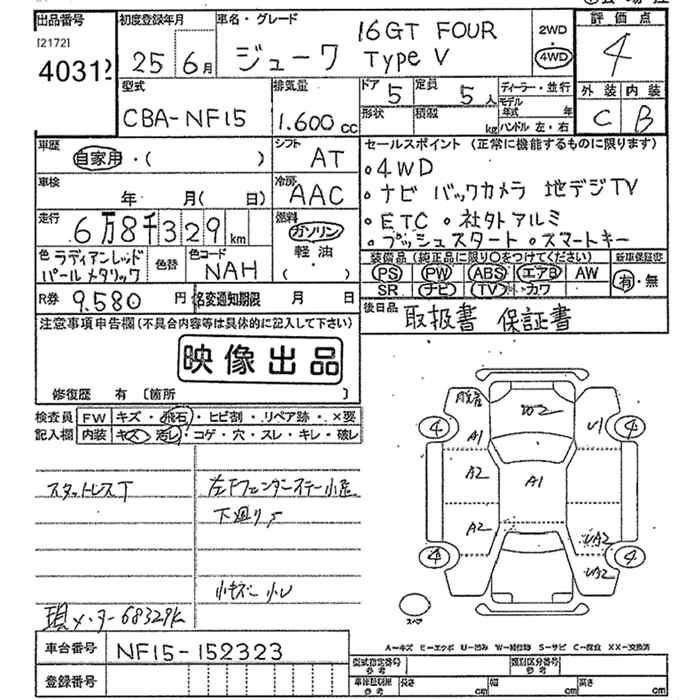 出品番号 初度登録年月 車名・グレード 評価点
[2172]
40312 25年 6月 ジューク 16GT FOUR Type V 2WD 4WD 4
型式 排気量 ドア 定員 ディーラー・並行 外装 内装
CBA-NF15 1.600cc 5 5人 モデル年式 年 C B
形状 積載 kg ハンドル 左・右
車歴 シフト セールスポイント (正常に機能するものに限ります)
自家用・( ) AT ・4WD
車検 年 月( 日) 冷房 AAC ・ナビ バックカメラ 地デジTV
走行 6万8千329km 燃料 ガソリン ・ETC ・社外アルミ
軽油 ・プッシュスタート ・スマートキー
色 ラディアンレッドパールメタリック 色替 色コード NAH ( )
装備品(純正品に限り○をつけてください) 新車保証書
PS PW ABS エアB AW 有・無
SR ナビ TV カワ
R券 9.580円 名変通知期限 月 日 後日品 取扱書 保証書
注意事項申告欄(不具合内容等は具体的に記入して下さい)
映像出品
修復歴 有 〔箇所 〕
検査員 FW キズ・飛石・ヒビ割・リペア跡・×要
記入欄 内装 キズ・汚レ・コゲ・穴・スレ・キレ・破レ
スタットレスT
左Fフェンダーステー小
下廻りS
小キズ 小
現メーター68329k
4 A1 W2 U1 4
A2 A1
A2 UA2
4 UA2 4
スペア
A=キズ E=エクボ U=凹み W=補修跡 S=サビ C=腐食 XX=交換済
車台番号 NF15-152323
型式指定番号 参考 類別区分番号 参考
登録番号 車体諸元 参考 長さ cm 幅 cm 高さ cm